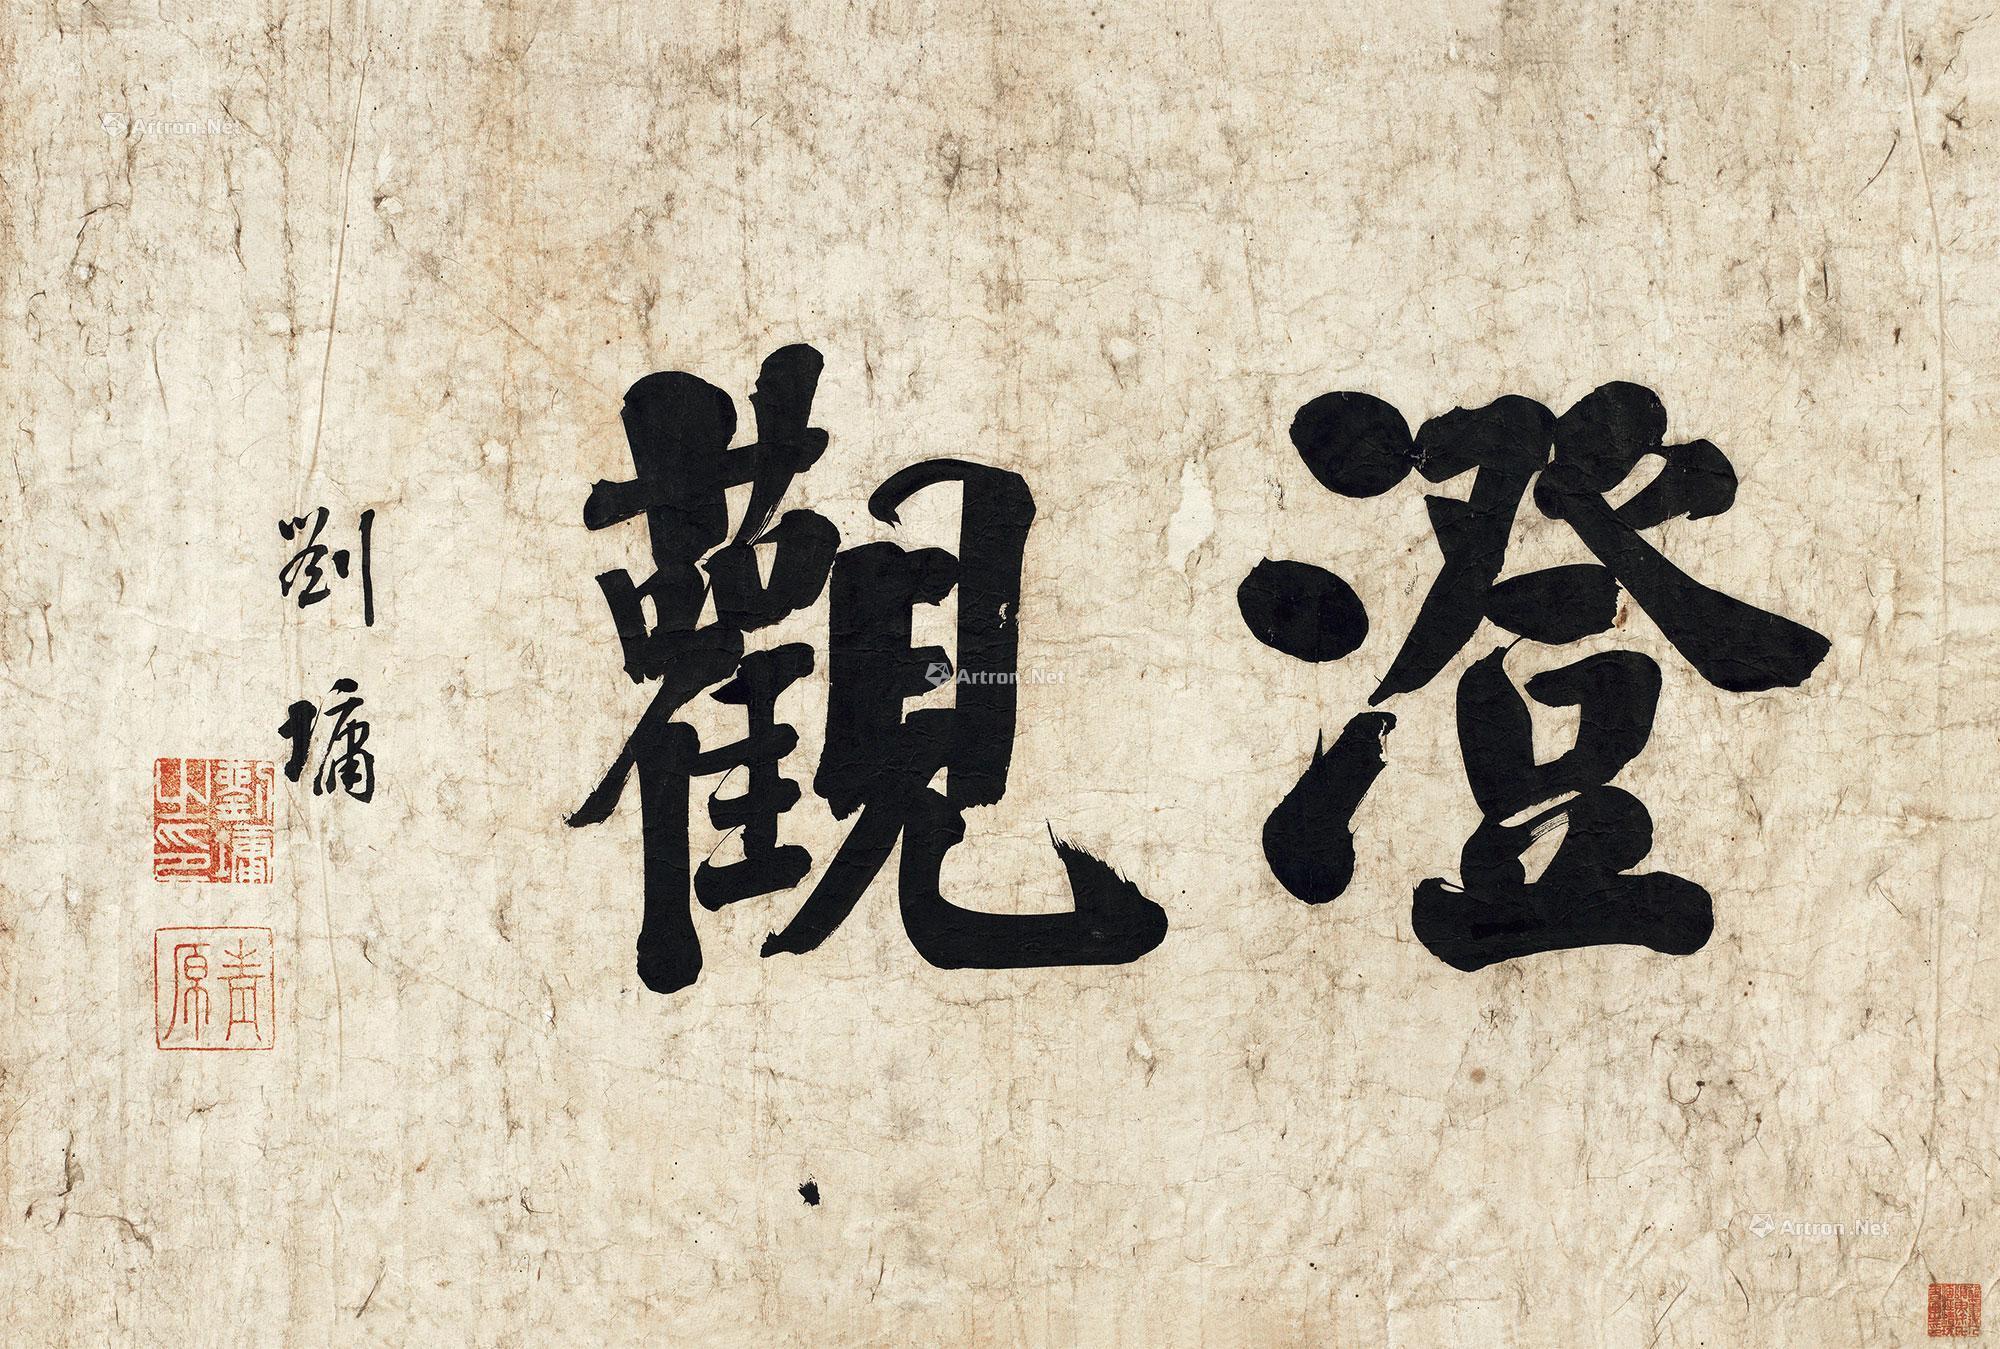 澄觀
劉墉
劉墉之印
青原
Artron.Net
Artron.Net
Artron.Net